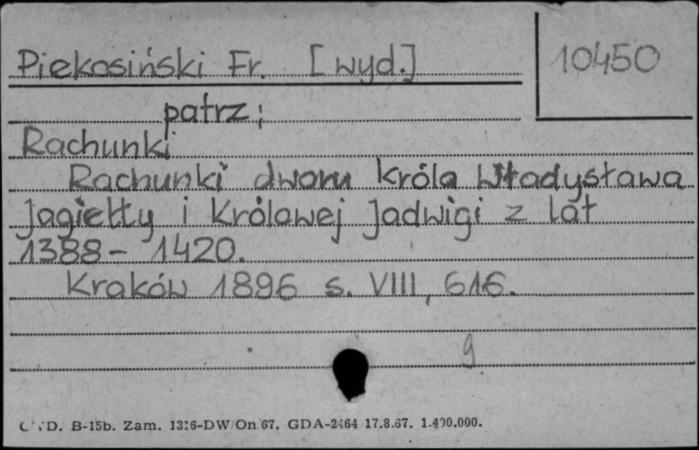 Piekosiński Fr. [wyd.]
10450
patrz;
Rachunki
Rachunki dworu króla Władysława
Jagiełły i Królowej Jadwigi z lat
1388 - 1420.
Kraków 1896 s. VIII, 616.
9
D. B-15b. Zam. 1316-DW/On/67. GDA-2464 17.8.67. 1.400.000.